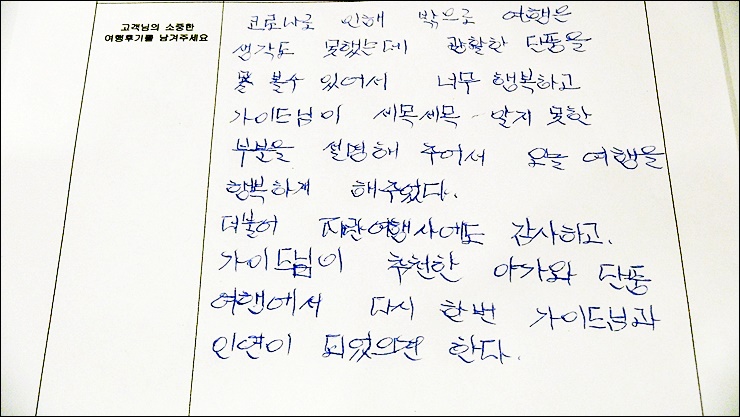 고객님의 소중한
여행후기를 남겨주세요
코로나로 인해 밖으로 여행은
생각도 못했는데 관찰한 단풍을
볼수 있어서 너무 행복하고
가이드님이 세목세목 알지 못한
부분을 설명해 주어서 오늘 여행을
행복하게 해주었다.
더불어 여행사에도 감사하고.
가이드님이 추천한 야가와 단풍
여행에서 다시 한번 가이드님과
인연이 되었으면 한다.